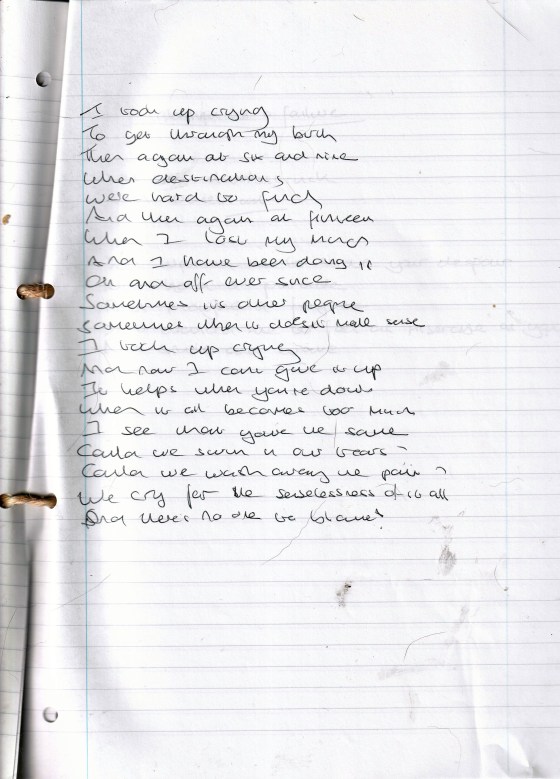 I took up crying
To get through my birth
Then again at six and nine
When destinations
were hard to find
And then again at fourteen
When I lost my mind
And I have been doing it
On and off ever since
Sometimes it's other people
Sometimes when it doesn't make sense
I took up crying
And now I can't give it up
It helps when you're down
When it all becomes too much
I see that you're the same
Could we swim in our tears?
Could we wash away the pain?
We cry for the senselessness of it all
And there's no one to blame!